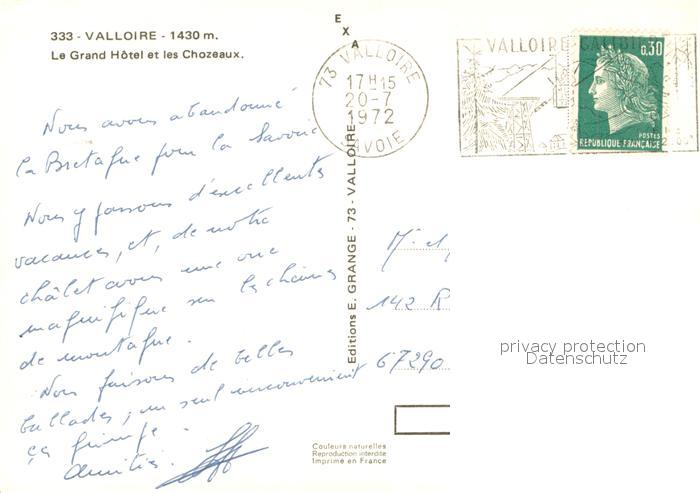 333 - VALLOIRE - 1430 m.
Le Grand Hôtel et les Chozeaux.
E
X
A
73 VALLOIRE
17H15
20-7
1972
SAVOIE
VALLOIRE GALIBIER
0,30
POSTES
REPUBLIQUE FRANÇAISE
Nous avons abandonné
la Bretagne pour la Savoie
Nous y passons d'excellentes
vacances, et, de notre
châlet avons une vue
magnifique sur les chaines
de montagne.
Nous faisons de belles
ballades; un seul inconvénient
ça grimpe.
Amitiés.
Editions E. GRANGE - 73 - VALLOIRE
M. et
142 R
67290
privacy protection
Datenschutz
Couleurs naturelles
Reproduction interdite
Imprimé en France